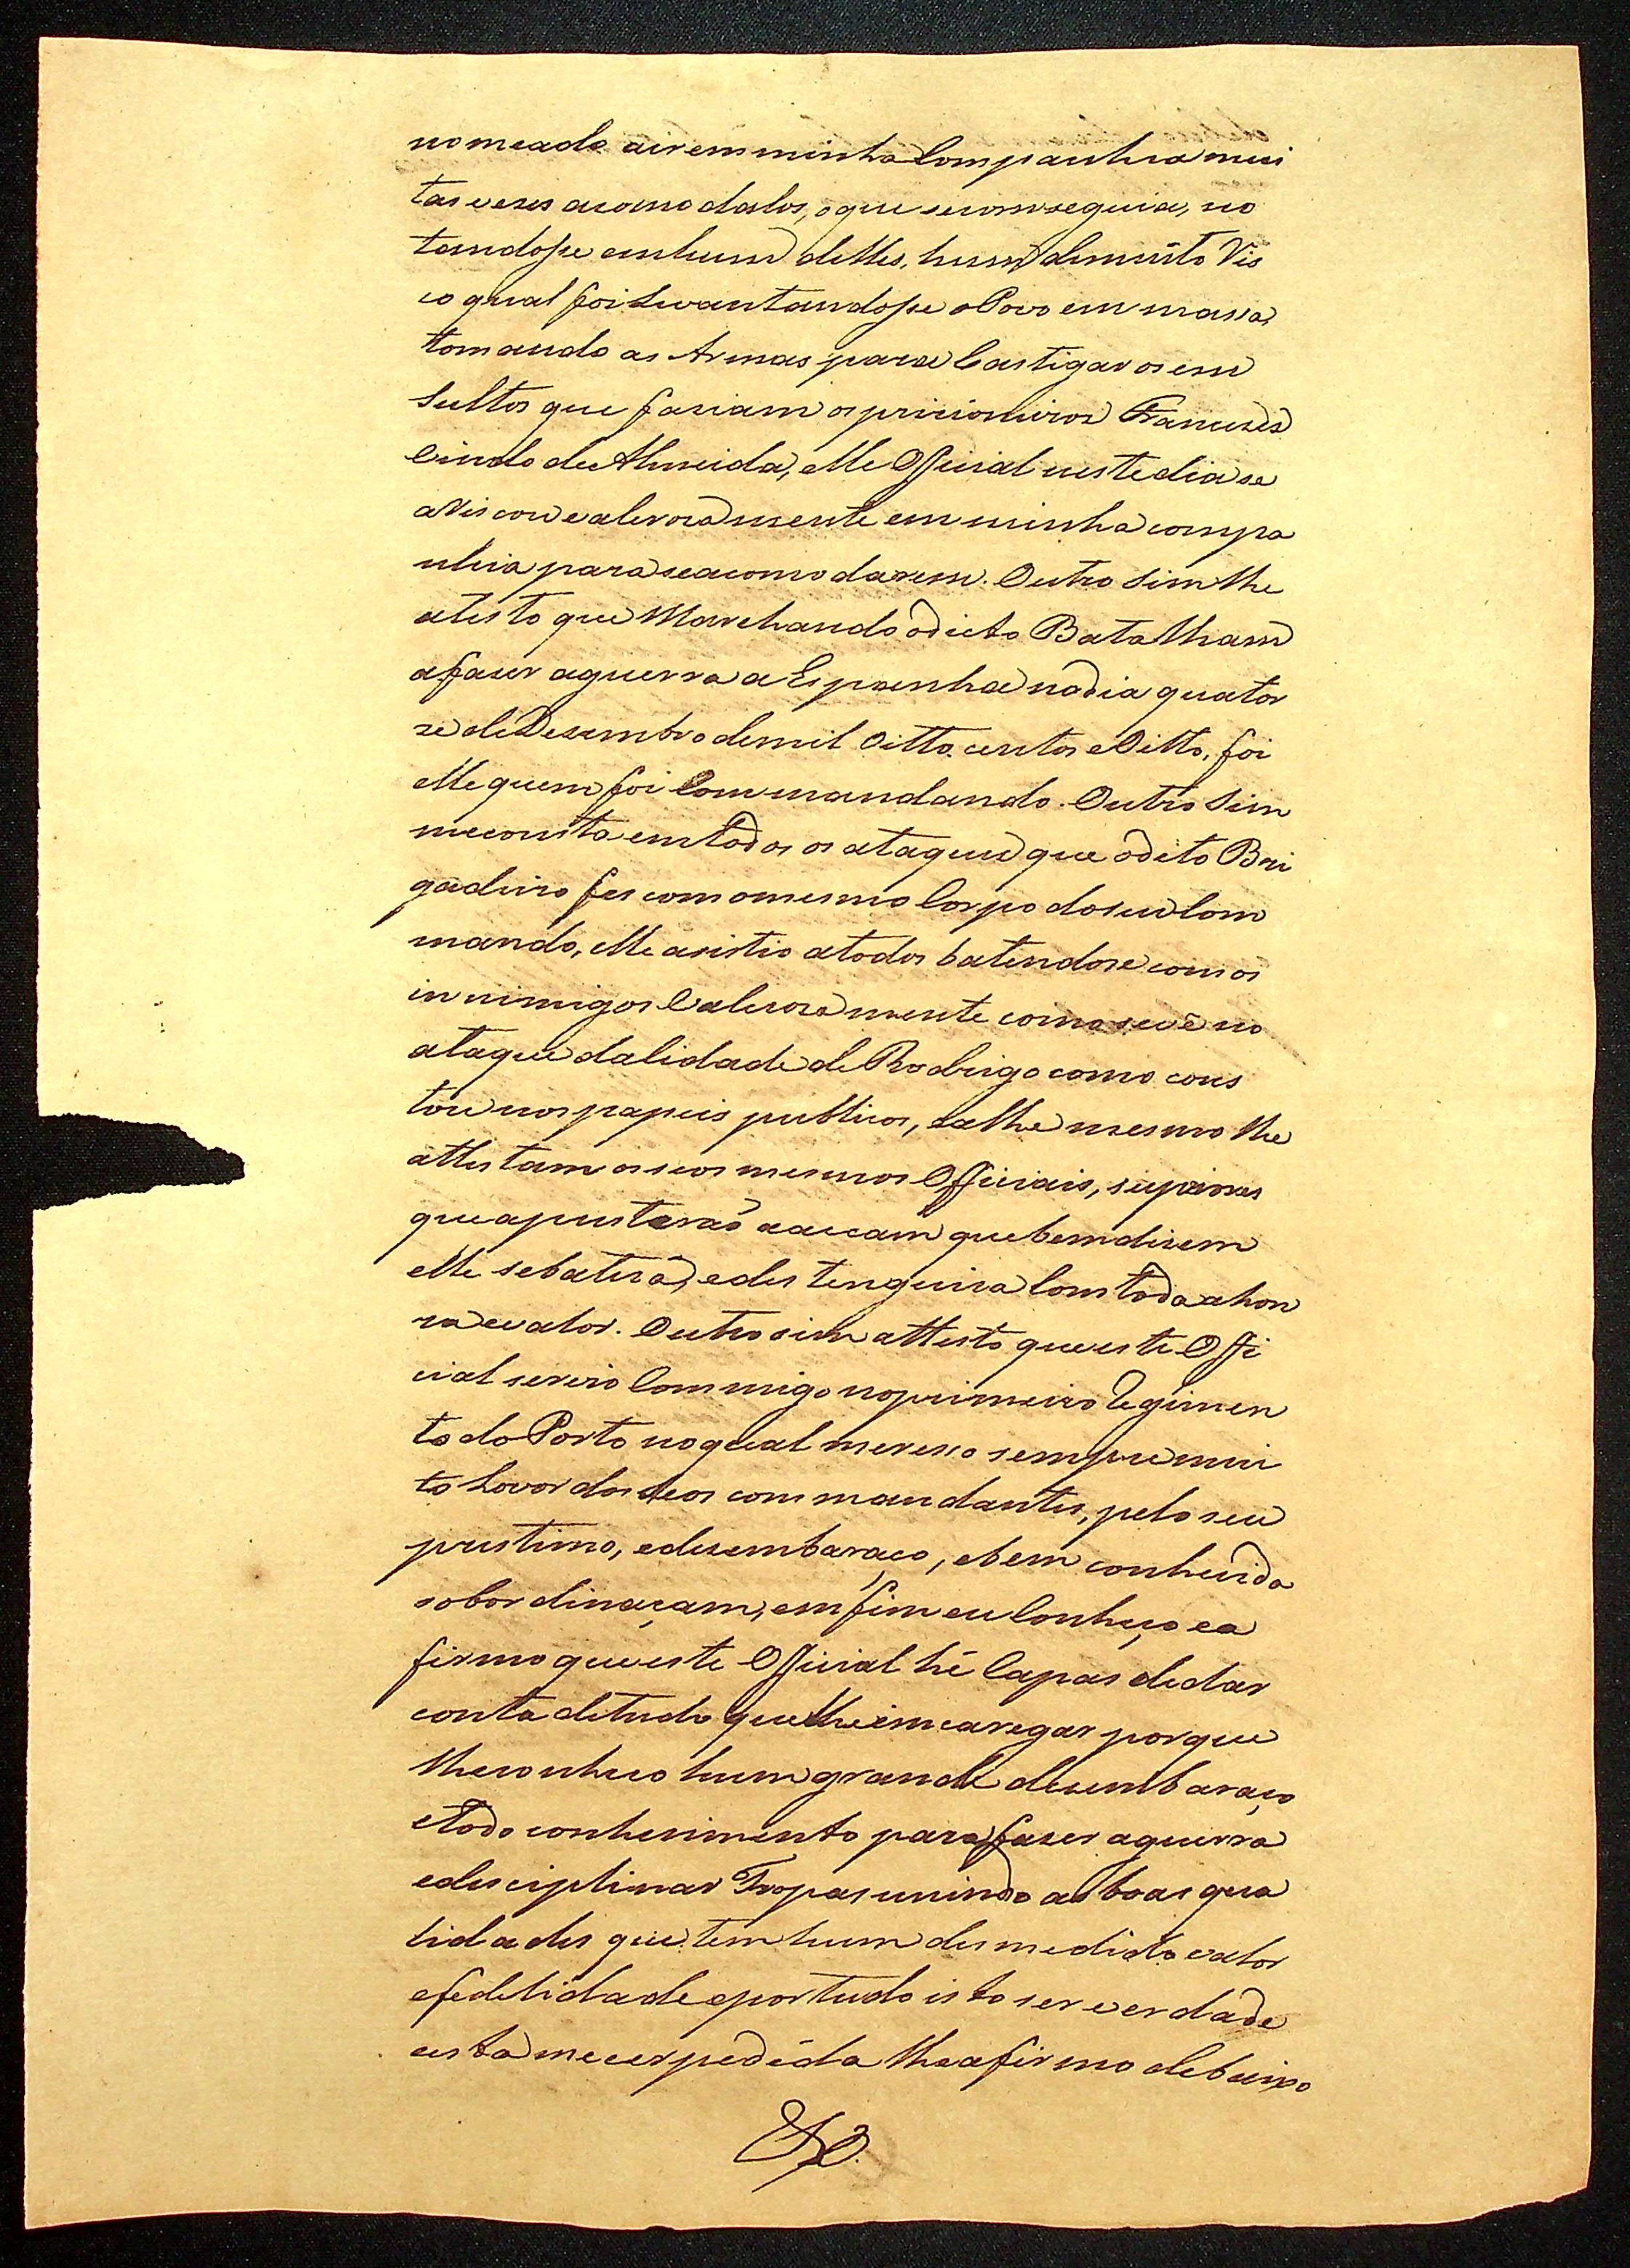 nomeado air em minha Companhia mui
tas veses acomodalos, o que se comseguia, no
tandosse em hum delles, hum demuito Vis
co qual foi Levantandosse o Povo em massa,
tomando as Armas para Castigar os em
sultos que fasiam os pricioneiros Franceses
Cindo de Almeida, elle Official neste dia se
aRiscou evalerosamente em minha compa
nhia para se acomodarem. Outro Sim lhe
atesto que Marchando o dicto Batalham
afaser aguerra a Espanha no dia quator
ze de Desembro de mil Oitto centos e Oitto, foi
elle quem foi Commandando. Outro Sim
me consta em todos os ataques que o dito Bri
gadeiro fes com o mesmo Corpo do seu Com
mando, elle asistio atodos batendose com os
innimigos Valerosamente como se vê no
ataque da Cidade de Rodrigo como cons
tou nos papeis publicos, e alhe mesmo lhe
attestam os seos mesmos Officiais, supriores
que aprestarão a accam que bem disem
elle se baterá, e des tenguira Com toda a hon
ra e valor. Outro sim attesto que este Offi
cial servio Commigo no primeiro Regimen
to do Porto no qual meresso sempre mui
to Lovor dos seos commandantes, pelo seu
prestimo, e desembaraço, e bem conhecida
sobordinaçam, em fim eu Conheço ea
firmo que este Official hé Capas de dar
conta de tudo que lhe emcaregar porque
lhe conheco hum grande desembaraço
e todo conhecimento para faser aguerra
e desciplinar Tropas unindo as boas qua
lidades que tem hum desmedido valor
e fedelidade e por tudo isto ser verdade
esta me cer pedida lhe afirmo debaixo